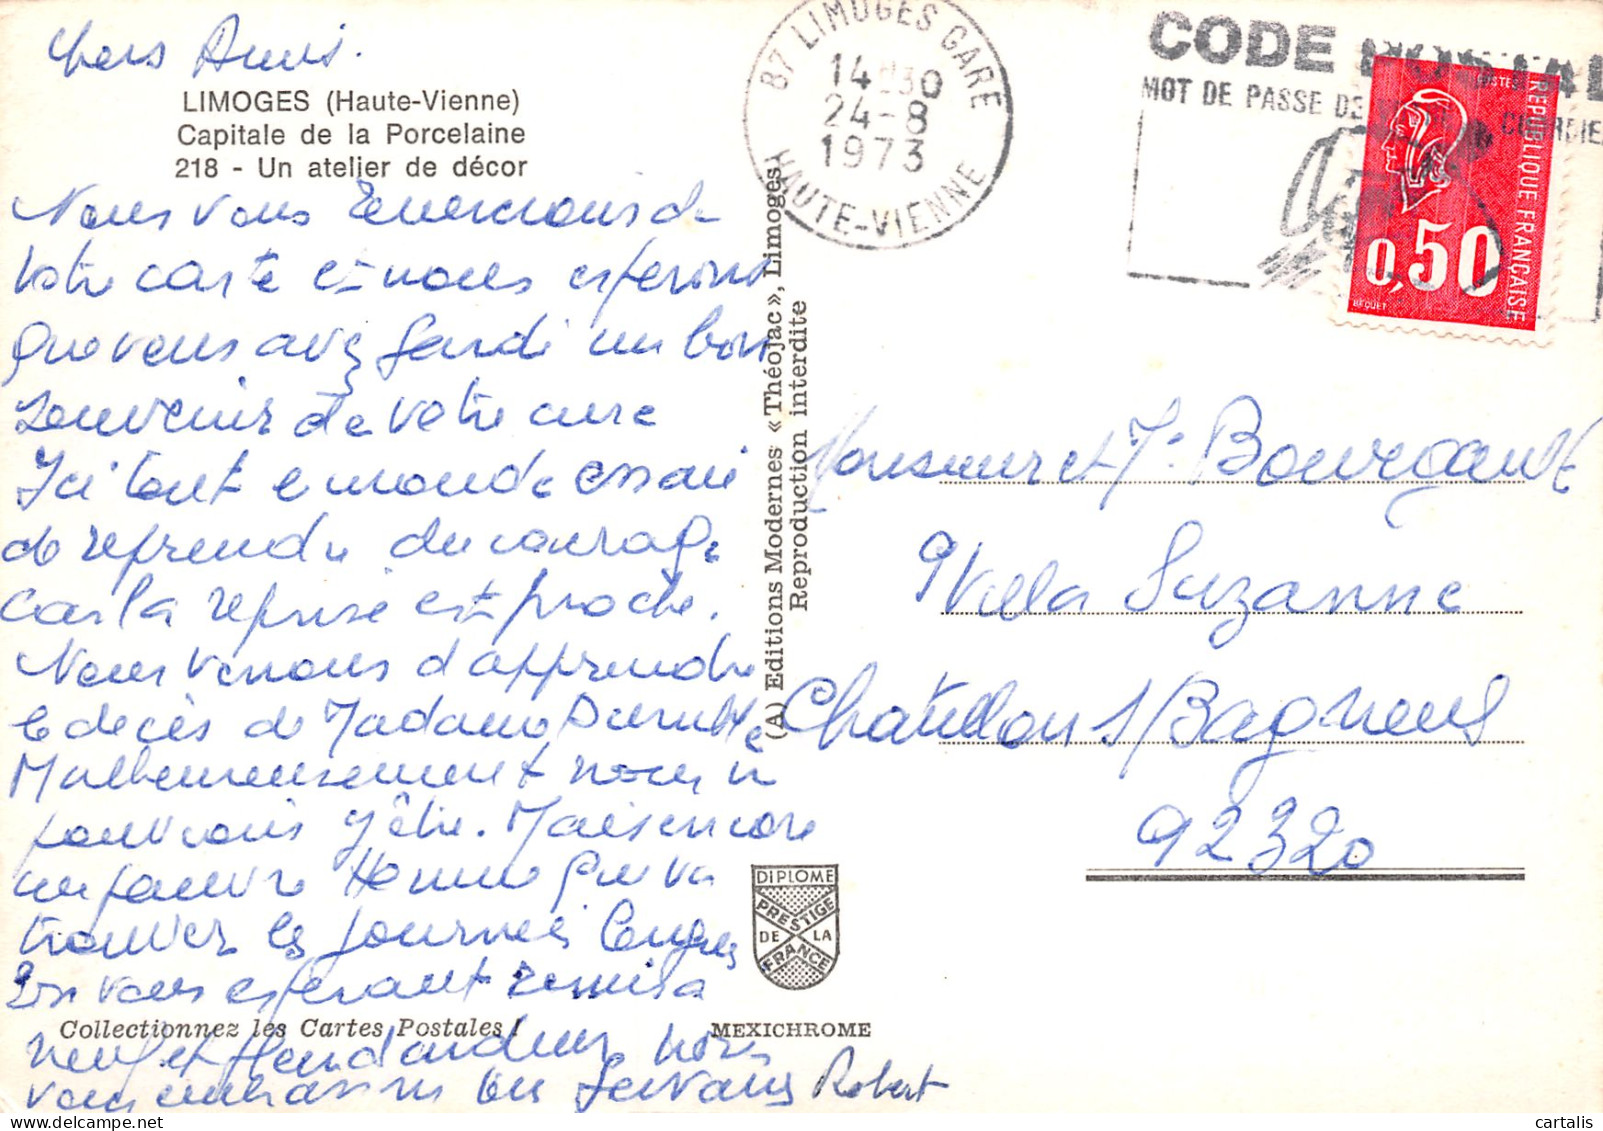 Chers Amis.
LIMOGES (Haute-Vienne)
Capitale de la Porcelaine
218 - Un atelier de décor
Nous vous remercions de
votre carte et nous esperons
que vous avez gardé un bon
souvenir de votre cure
Ici tout le monde essaie
de reprendre du courage
car la reprise est proche.
Nous venons d'apprendre
le decès de Madame
Malheureusement nous n
pouvions y être. Mais encore
un pauvre Homme qui va
trouver les journées longues
En vous esperant remis a
neuf et
vous embrassons
Robert
Collectionnez les Cartes Postales !
MEXICHROME
DIPLOME
PRESTIGE
DE LA
FRANCE
(A) Editions Modernes « Théojac », Limoges
Reproduction interdite
87 LIMOGES GARE
14 30
24-8
1973
HAUTE-VIENNE
CODE POSTAL
MOT DE PASSE DE
COURRIER
POSTES
REPUBLIQUE FRANÇAISE
0,50
BEQUET
Monsieur et M. Bourgault
9 Villa Suzanne
Chatillon s/Bagneux
92320
cartalis